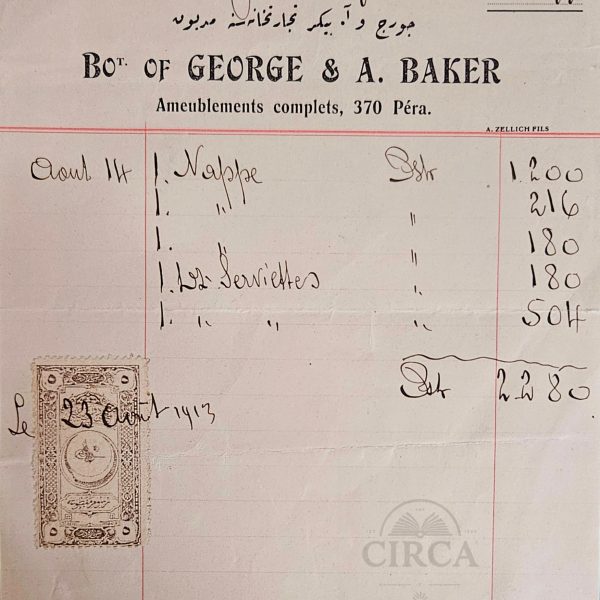 جورج و آ. بیکر تجارتخانه‌سنه مدیون
BOT. OF GEORGE & A. BAKER
Ameublements complets, 370 Péra.
A. ZELLICH FILS
Aout 14 1. Nappe Pstr 1.200
1. " " 216
1. " " 180
1. Dz. Serviettes " 180
1. " " " 504
Pstr 2.280
Le 23 Août 1913
CIRCA